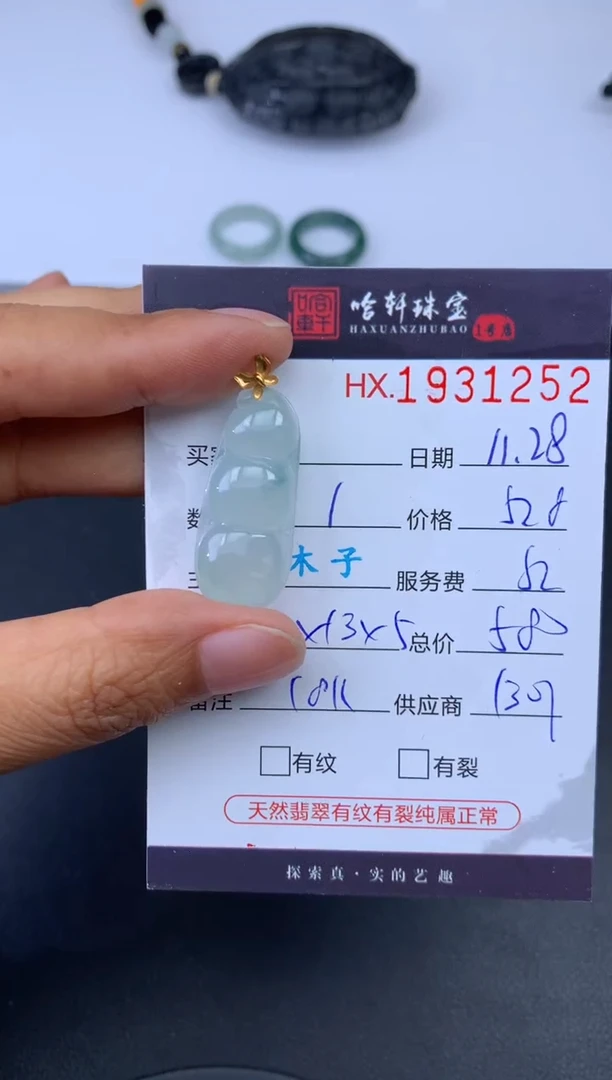 哈轩珠宝
HAXUANZHUBAO 1号店
HX.1931252
买 日期 11.28
数 1 价格 528
木子 服务费 52
×13×5 总价 580
备注 18K 供应商
有纹 有裂
天然翡翠有纹有裂纯属正常
探索真·实的艺趣